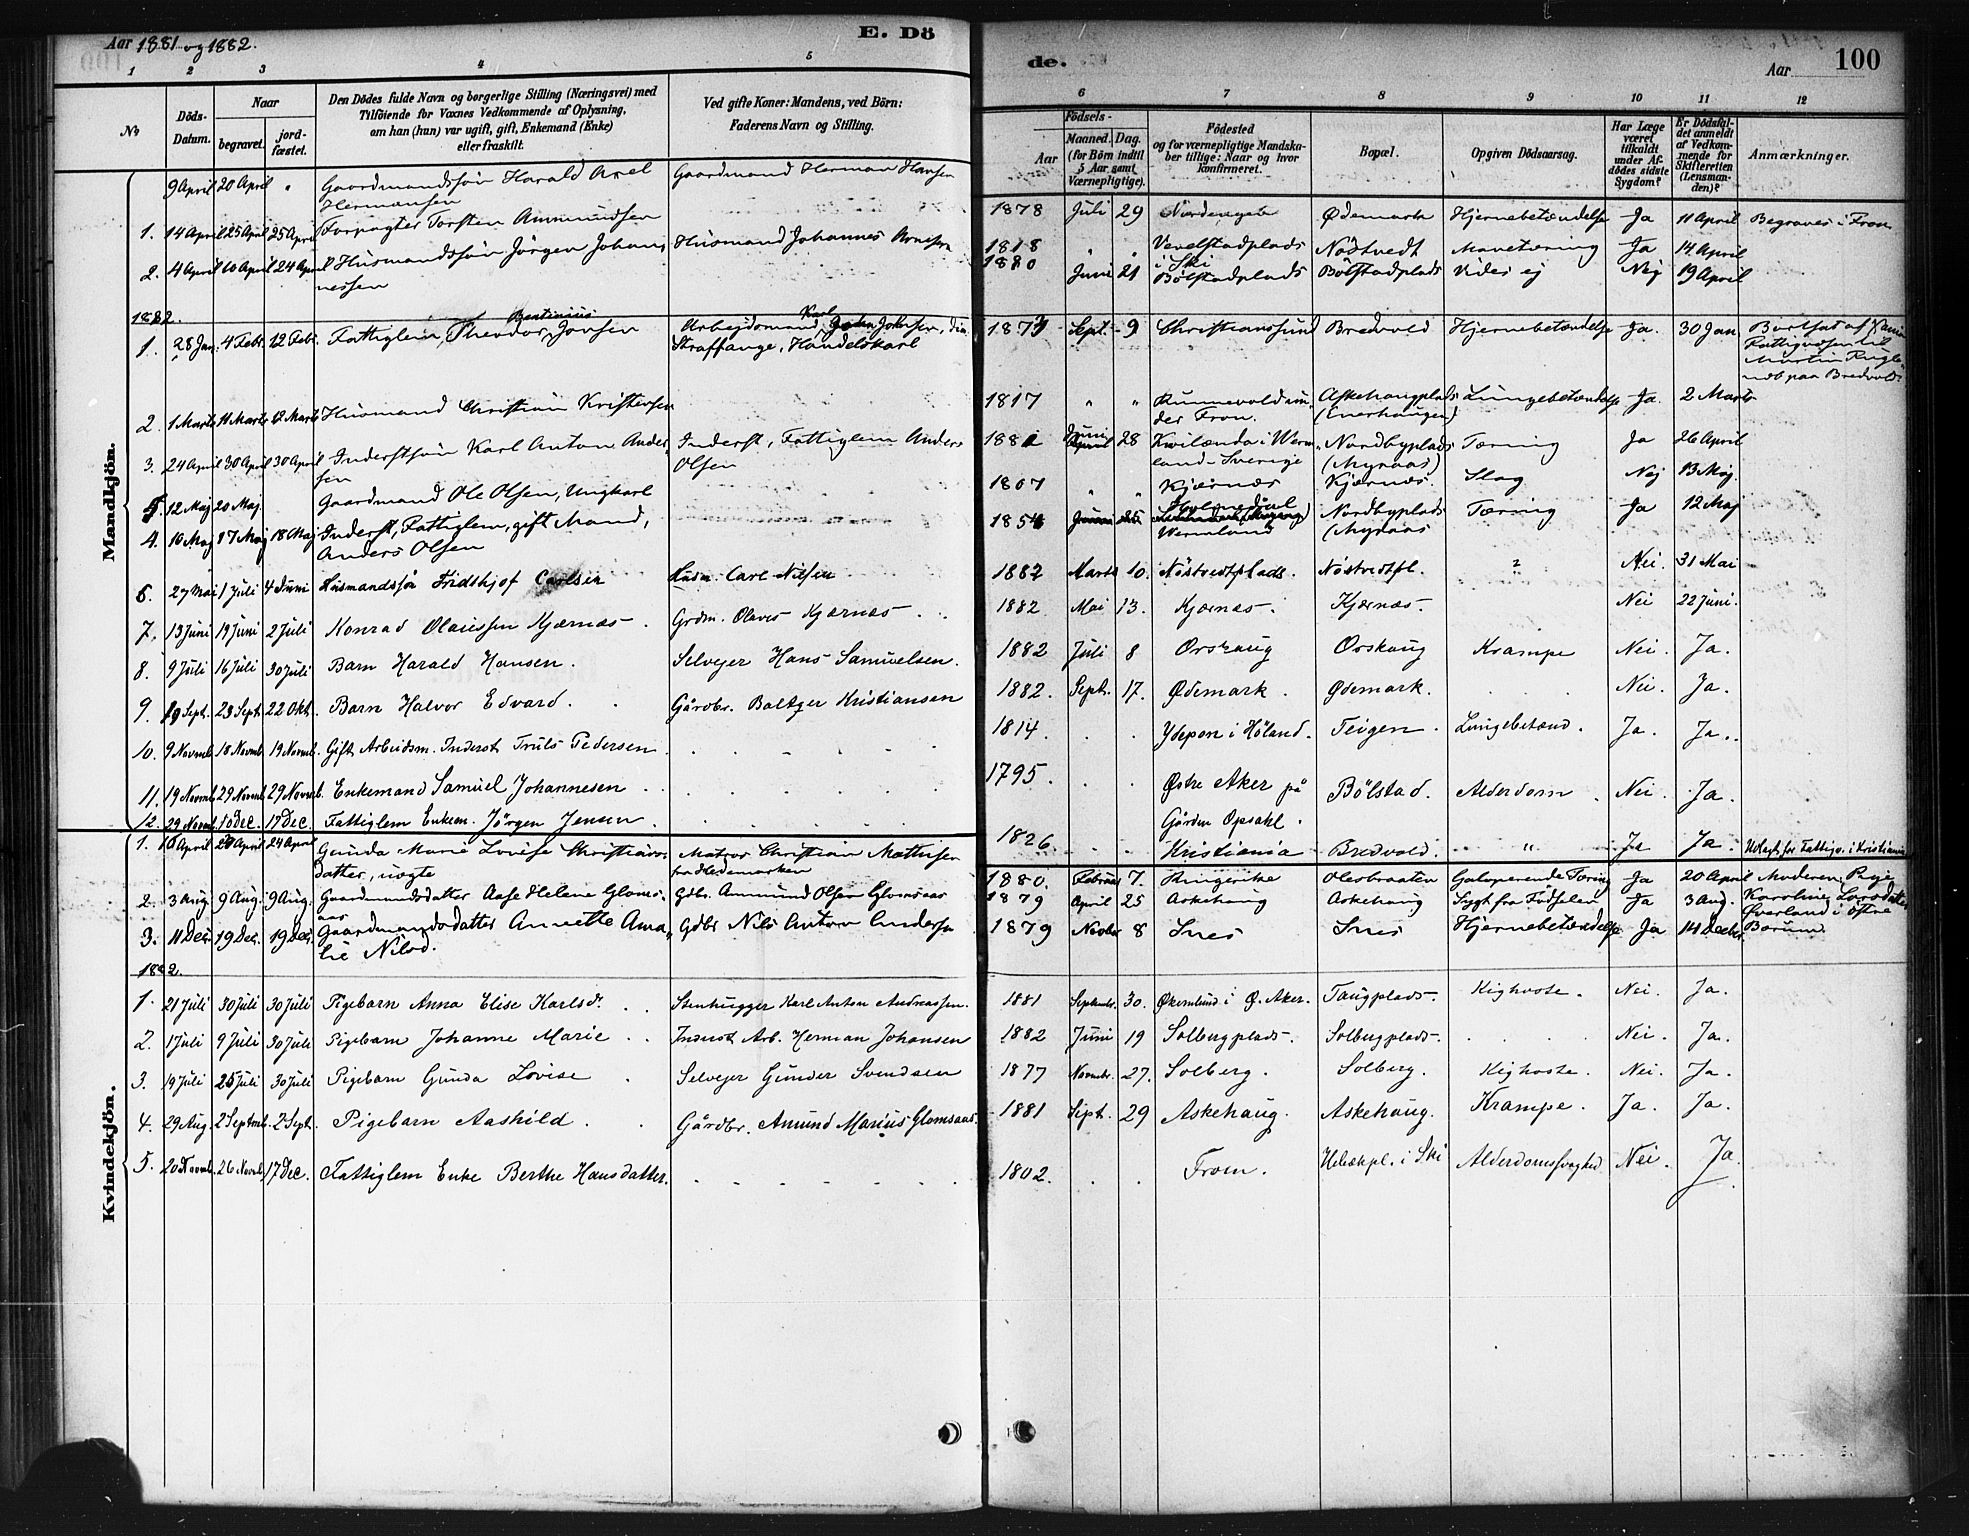 Aar 1881 og 1882.
E. Dö
de.
Aar
100
1 2 3 4 5 6 7 8 9 10 11 12
No
Döds-Datum.
Naar
begravet.
jord-fæstet.
Den Dödes fulde Navn og borgerlige Stilling (Næringsvei) med
Tilföiende for Voxnes Vedkommende af Oplysning,
om han (hun) var ugift, gift, Enkemand (Enke)
eller fraskilt.
Ved gifte Koner: Mandens, ved Börn:
Faderens Navn og Stilling.
Födsels-
Aar
Maaned. Dag.
(for Börn indtil
5 Aar samt
Værnepligtige).
Födested
og for værnepligtige Mandska-
ber tillige: Naar og hvor
konfirmeret.
Bopæl.
Opgiven Dödsaarsag.
Har Læge
været
tilkaldt
under Af-
dödes sidste
Sygdom?
Er Dödsfal-
det anmeldt
af Vedkom-
mende for
Skifteretten
(Lensman-
den)?
Anmærkninger.
Mandkjön.
9 April 20 April " Gaardmandssön Harald Axel Hermansen Gaardmand Herman Hansen 1878 Juli 29 Ødemark Hjernebetændelse Ja 11 April Begraves i Fron
1. 14 April 25 April 25 April Forpagter Torsten Ammundsen 1818 " " Vevelstadplads i Ski Nöstvedt Mavetæring Ja 14 April
2. 4 April 10 April 24 April Husmandssön Jörgen Johannessen Husmand Johannes Arnesen 1880 Juni 21 Bölstadplads Bölstadplads Vides ej Nej 19 April
1882.
1. 28 Jan. 4 Febr. 12 Febr. Fattiglem, Theodor Bentinius Jonsen Arbejdsmand, Karl Johnsen, din Straffange, Handelskarl 1873 Sept. 9 Christianssund Bredvold Hjernebetændelse Ja. 30 Jan. Bortsat af Fattigvæsen til Martin paa Bredvold
2. 1 Marts 11 Marts 12 Marts Husmand Christian Kristensen 1817 " " under Fron. Askehaugplads (Enerhaugen) Lungebetændelse Ja. 2 Marts
3. 24 April 30 April 30 April Inderstsön Karl Anton Andersen Inderst, Fattiglem Anders Olsen 1881 Juni 28 i Wermland - Sverige Nordbyplads (Myraas) Tæring Ja 26 April
5. 12 Maj 20 Maj. Gaardmand Ole Olsen, Ungkarl 1807 " " Kjærnæs Kjærnæs. Slag Nej 13 Maj.
4. 10 Maj 17 Maj 18 Maj Inderst, Fattiglem, gift Mand, Anders Olsen 1854 Wermland Nordbyplads (Myraas Tæring Ja 12 Maj
6. 27 Mai 1 Juli 4 Juni Husmandssön Fridthjof Carlsen Husm. Carl Nilsen 1882 Marts 10. Nöstvedtplads. Nöstvedtpl. ? Nei. 31 Mai
7. 13 Juni 19 Juni 2 Juli Konrad Olaussen Kjærnæs. Grdm. Olaves Kjærnæs. 1882 Mai 13. Kjærnæs. Kjærnæs. Nei 22 Juni.
8. 9 Juli 16 Juli 30 Juli Barn Harald Hansen. Selvejer Hans Samuelsen. 1882 Juli 8 Orskaug Orskaug Krampe Nei. Ja.
9. 19 Sept. 23 Sept. 22 Okt. Barn Halvor Edvard. Gårdbr. Baltzer Kristiansen 1882. Sept. 17. Ødemark. Ødemark. Nei. Ja.
10. 9 Novmb. 18 Novmb. 19 Novmb. Gift Arbeidsm. Inderst Truls Pedersen. 1814. i Höland. Teigen. Lungebetænd. Ja. Ja.
11. 19 Novmb. 29 Novmb. 29 Novmb. Enkemand Samuel Johannesen 1795. Østre Aker på Gården Opsahl. Bölstad. Alderdom. Nei. Ja.
12. 29 Novmb. 10 Dec. 17 Dec. Fattiglem Enkem. Jörgen Jensen. 1826. Kristiania Bredvold. " Ja Ja. Udlagt for Fattigv. i Kristiania
Kvindekjön.
1. 16 April 20 April 24 April Gunda Marie Lovise Christiansdatter, uægte Matros Christian Mathisen fra Hedemarken 1880. Februar 7. Ringerike Olesbraaten Galoperende Tæring Ja 20 April Moderen: Pige Karoline Larsdatter Øverland i östre Bærum
2. 3 Aug. 9 Aug. 9 Aug. Gaardmandsdatter Aase Helene Glomsaas Gdbr. Ammund Olsen Glomsaas 1879 April 25 Askehaug Askehaug Sygt fra Födselen Ja 3 Aug.
3. 11 Dec. 19 Dec. 19 Dec. Gaardmandsdatter Annette Amalie Nilsd. Gdbr Nils Anton Andersen 1879 Novbr 8 Snes Snes Hjernebetændelse Ja 14 Decbr.
1882.
1. 21 Juli 30 Juli 30 Juli Pigebarn Anna Elise Karlsd. Stenhugger Karl Anton Andreassen. 1881 Septmbr. 30. Økernlund i Ø. Aker. Taugplads. Kighoste. Nei. Ja.
2. 1 Juli 9 Juli 30 Juli Pigebarn Johanne Marie Inderst Arb. Herman Johansen 1882 Juni 19 Solbergplads. Solbergplads. Nei. Ja.
3. 19 Juli 25 Juli 30 Juli Pigebarn Gunda Lovise Selvejer Gunder Svendsen 1877 Novmbr. 27. Solberg. Solberg. Kighoste. Nei. Ja.
4. 29 Aug. 2 Septmb. 2 Sept. Pigebarn Aashild. Gårdbr. Amund Marius Glomsaas. 1881 Sept. 29 Askehaug. Askehaug. Krampe. Ja. Ja.
5. 20 Novmb. 26 Novmb. 17 Dec. Fattiglem Enke Berthe Hansdatter. 1802. Fron. i Ski Alderdomssvaghed Nei. Ja.